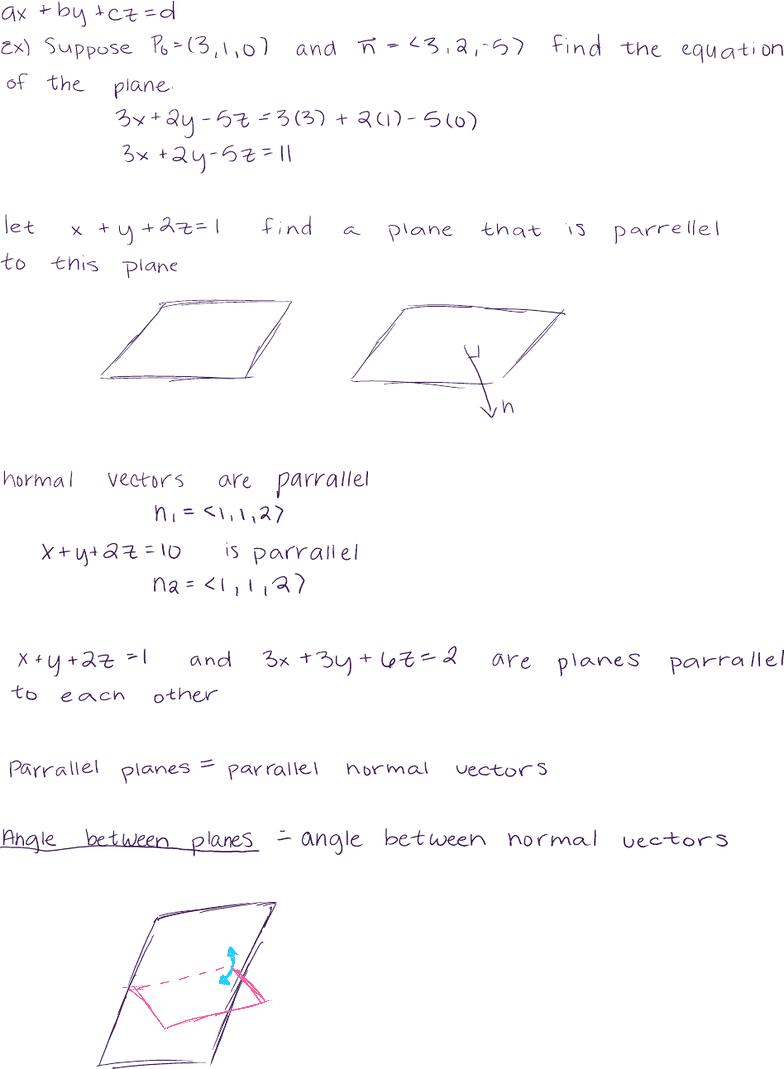 ax + by + cz = d
Ex) Suppose P₀ = (3,1,0) and n⃗ = <3,2,-5> find the equation
of the plane.
3x + 2y - 5z = 3(3) + 2(1) - 5(0)
3x + 2y - 5z = 11
let x + y + 2z = 1 find a plane that is parrellel
to this plane
n
normal vectors are parrallel
n₁ = <1,1,2>
x + y + 2z = 10 is parrallel
n2 = <1,1,2>
x + y + 2z = 1 and 3x + 3y + 6z = 2 are planes parrallel
to each other
Parrallel planes = parrallel normal vectors
Angle between planes = angle between normal vectors